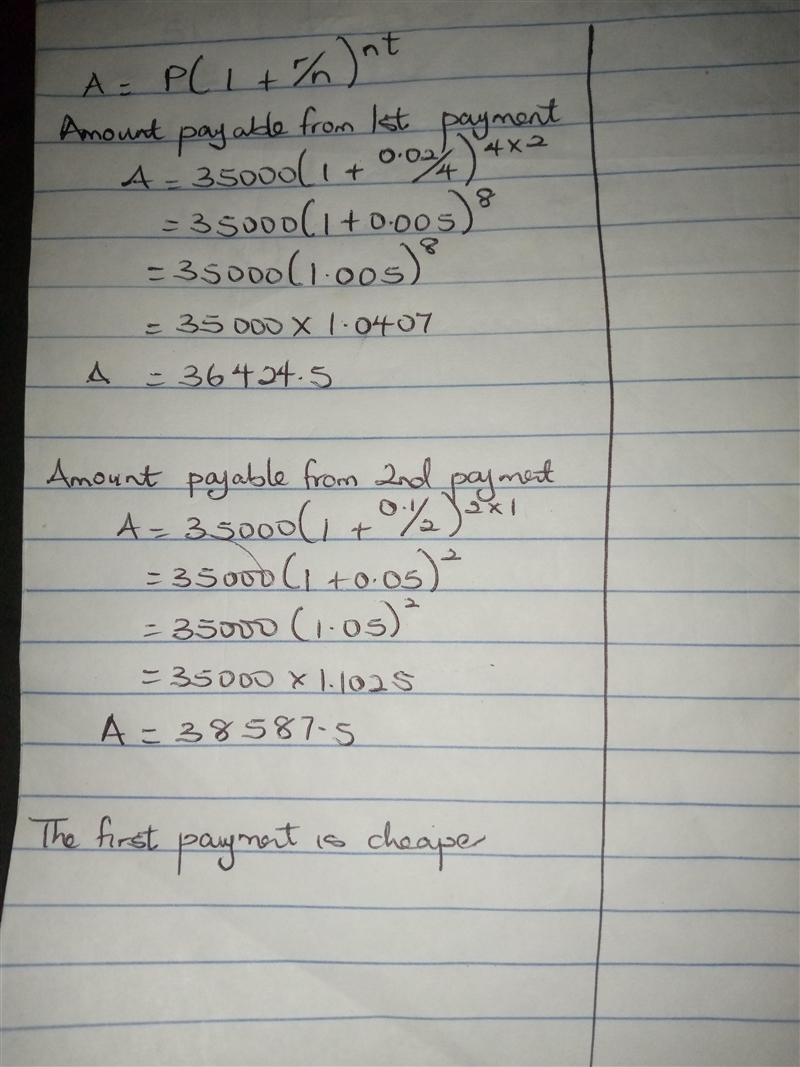 A = P(1 + r/n)^nt
Amount payable from 1st payment
A = 35000(1 + 0.02/4)^4×2
= 35000(1+0.005)^8
= 35000(1.005)^8
= 35000 × 1.0407
A = 36424.5
Amount payable from 2nd payment
A = 35000(1 + 0.1/2)^2×1
= 35000(1+0.05)^2
= 35000 (1.05)^2
= 35000 × 1.1025
A = 38587.5
The first payment is cheaper